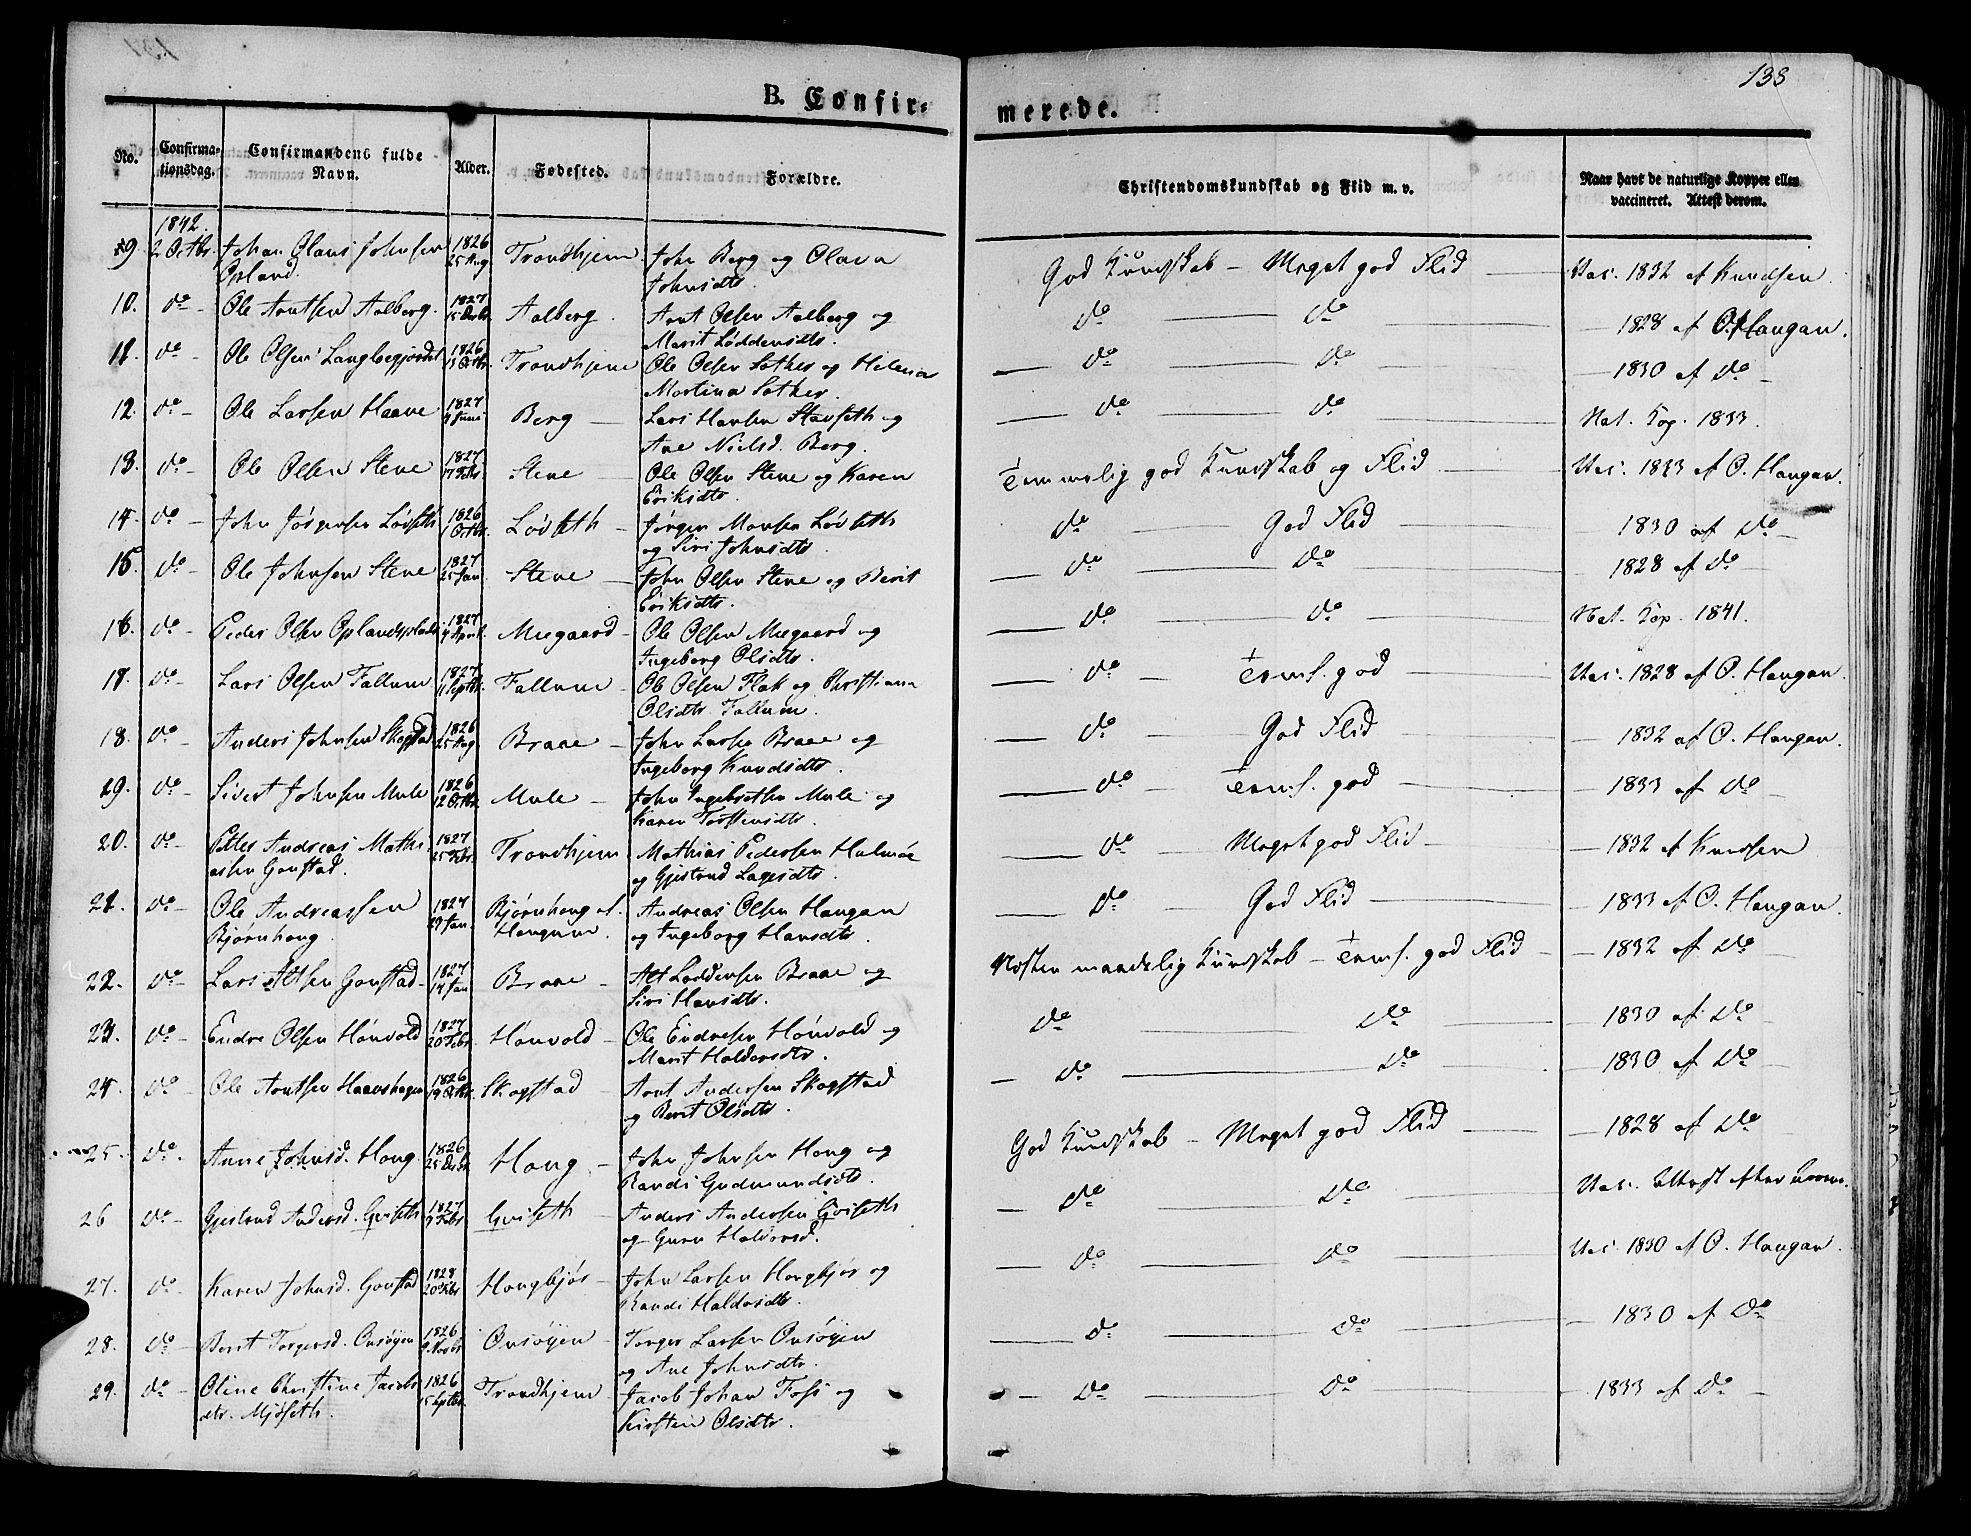 138
B. Confir-
merede.
No.
Confirma-
tionsdag.
Confirmandens fulde
Navn.
Alder.
Fødested.
Forældre.
Christendomskundskab og Flid m. v.
Naar havt de naturlige Kopper eller
vaccineret. Attest derom.
1842.
9. 2 Octbr. Johan Olaus Johnsen 1826 Trondhjem John Berg og Olava God Kundskab - Meget god Flid Vac. 1832 af Knudsen
Opland. 25 Aug Johnsdtr.
10. do Ole Arntsen Aalberg. 1827 Aalberg. Arnt Olsen Aalberg og do do 1828 af O. Haugan.
15 Decbr. Marit Loddensdtr.
11. do Ole Olsen 1826 Trondhjem Ole Olsen Sother og Helena do do 1830 af do
15 Octbr. Martina Sother.
12. do Ole Larsen Haave 1827 Berg Lars Hansen Stavseth og do do Nat. Kop. 1833.
Juni Ane Nielsd. Berg.
13. do Ole Olsen Stene 1827 Stene Ole Olsen Stene og Karen Temmelig god Kundskab og Flid Vac. 1833 af O. Haugan.
17 Febr. Eriksdtr.
14. do John Jörgensen Lövseth 1826 Lövseth Jörgen Monsen Lövseth do God Flid 1830 af do
1 Octbr. og Siri Johnsdtr.
15. do Ole Johnsen Stene 1827 Stene John Olsen Stene og Berit do do 1828 af do
25 Jan. Eriksdtr.
16. do Peder Olsen 1827 Moegaard Ole Olsen Moegaard og do do Nat. Kop. 1841.
April. Ingeborg Olsdtr.
17. do Lars Olsen Fallum 1827 Fallum Ole Olsen Flak og Christiana do Teml. god Vac. 1828 af O. Haugan.
11 Septbr. Olsdtr. Fallum.
18. do Anders Johnsen Skogstad 1826 Braae John Larsen Braae og do God Flid 1832 af O. Haugan.
25 Aug. Ingeborg Knudsdtr.
19. do Sivert Johnsen Mule 1826 Mule John Ingebretsen Mule og do Teml. god 1833 af do
12 Octbr. Karen Torstensdtr.
20. do Petter Andreas Mathi- 1827 Trondhjem Mathias Pedersen Halmöe do Meget god Flid 1832 af Knudsen
asen Gonstad. 25 Febr. og Gjertrud Lagesdtr.
21. do Ole Andreassen 1827 Björnhong af Andreas Olsen Haugan do God Flid 1833 af O. Haugan.
Björnhong. 29 Jan. Hangum. og Ingeborg Hansdtr.
22. do Lars Altsen Gonstad 1827 Braae Alt Loddensen Braae og Næsten maadelig Kundskab - Teml. god Flid 1832 af do
14 Jan Siri Hansdtr.
23. do Endre Olsen Hönvold 1827 Hönvold Ole Endresen Hönvold og do do 1830 af do
20 Febr. Marit Haldorsdtr.
24. do Ole Arntsen Haavshagen 1826 Skogstad Arnt Andersen Skogstad do do 1830 af do
19 Octbr. og Berit Olsdtr.
25. do Anne Johnsd. Hong 1826 Hong John Johnsen Hong og God Kundskab - Meget god Flid 1828 af do
25 Decbr. Randi Gudmundsdtr.
26 do Gjertrud Andersd. Gviseth 1827 Gviseth Anders Andersen Gviseth do do Vac. Attest efter
Febr. og Guru Haldorsd.
27. do Karen Johnsd. Gonstad 1828 Hongbjör John Larsen Hongbjör og do do Vac. 1830 af O. Haugan.
20 Febr Randi Haldorsdtr.
28. do Berit Torgersd. Onsöyen 1826 Onsöyen Torger Larsen Onsöyen do do 1830 af do
9 Novbr. og Ane Johnsdtr.
29. do Oline Christine Jacobs- 1826 Trondhjem Jacob Johan Foss og do do 1833 af do
dtr. Mjöseth. 15 Septbr. Kirsten Olsdtr.